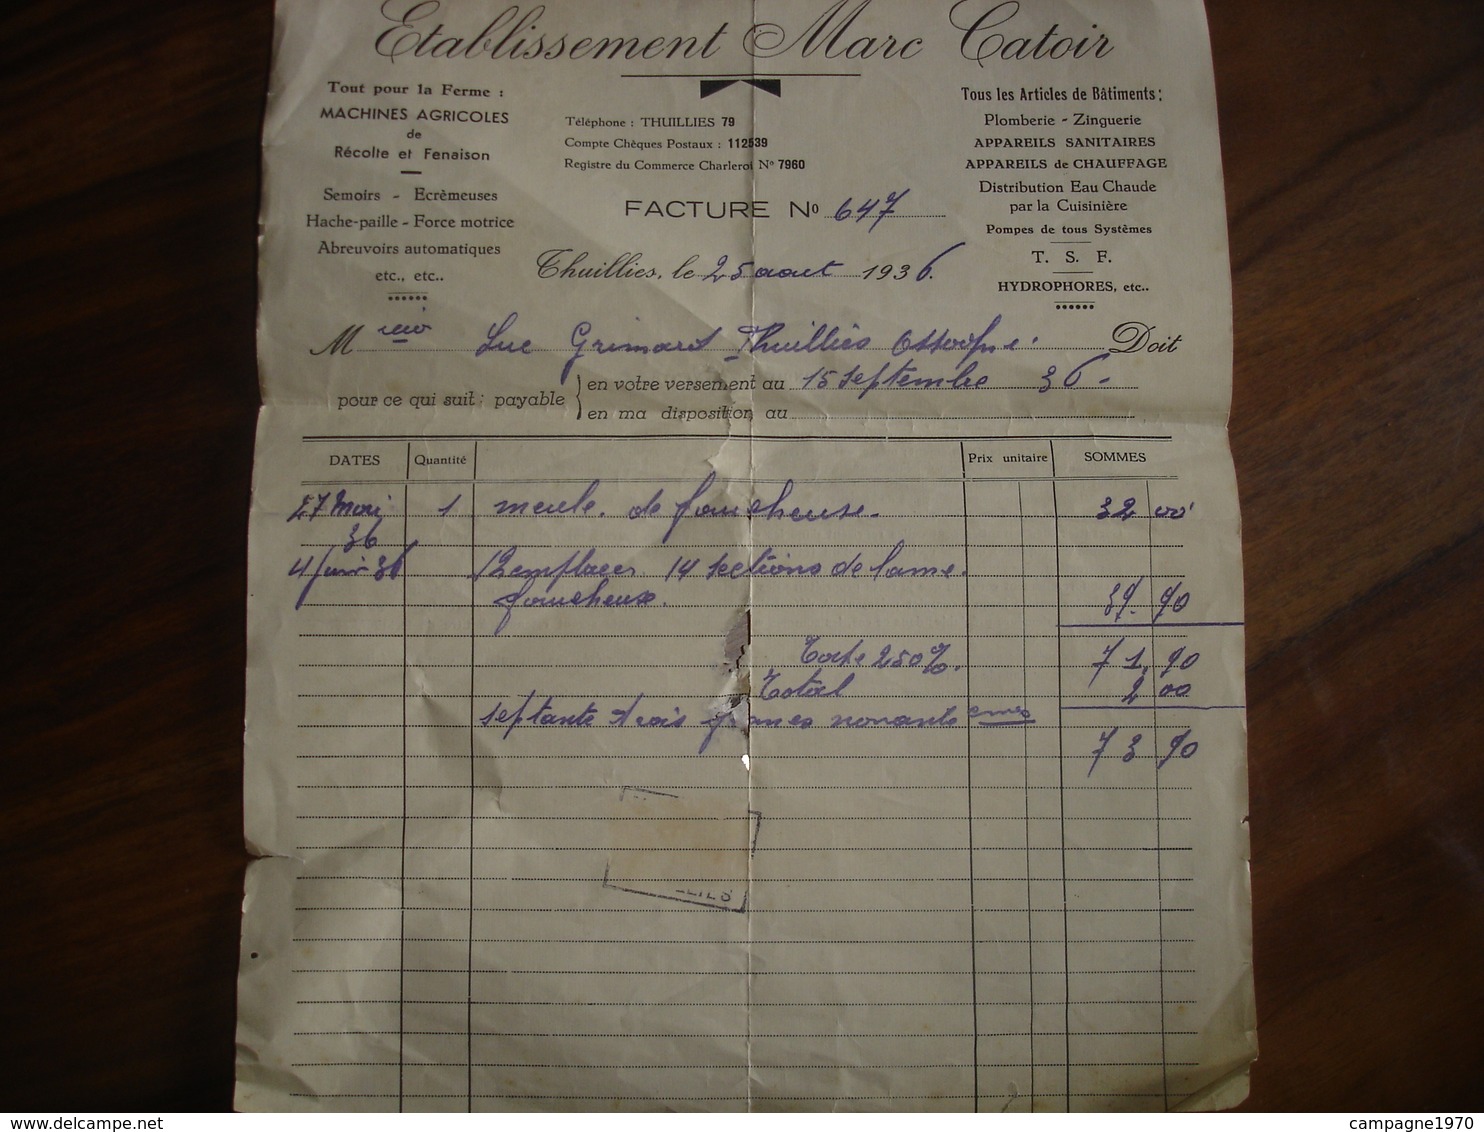 Etablissement Marc Catoir
Tout pour la Ferme :
MACHINES AGRICOLES
de
Récolte et Fenaison
Semoirs - Ecrèmeuses
Hache-paille - Force motrice
Abreuvoirs automatiques
etc., etc..
Téléphone : THUILLIES 79
Compte Chèques Postaux : 112539
Registre du Commerce Charleroi No 7960
FACTURE No 647
Thuillies, le 25 aout 1936.
Tous les Articles de Bâtiments :
Plomberie - Zinguerie
APPAREILS SANITAIRES
APPAREILS de CHAUFFAGE
Distribution Eau Chaude
par la Cuisinière
Pompes de tous Systèmes
T. S. F.
HYDROPHORES, etc..
M Luc Grimard Thuillies Doit
pour ce qui suit : payable
en votre versement au 15 septembre 36 -
en ma disposition au
DATES Quantité Prix unitaire SOMMES
27 Mai 1 meule de faucheuse. 32 00
36
4 juin 36 Remplacer 14 sections de lame
faucheuse. 39. 90
250%. 71, 90
Total 2 00
septante trois francs nonante cmes
73 90
campagne1970